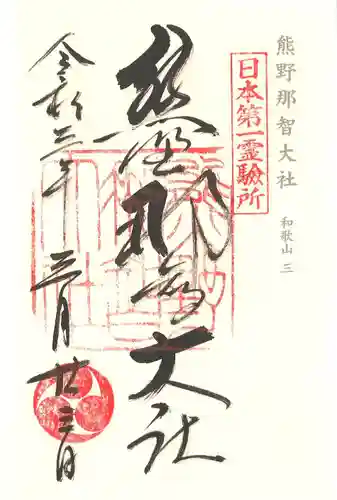 熊野那智大社
和歌山 三
日本第一霊験所
熊野那智大社
令和三年
三月廿三日